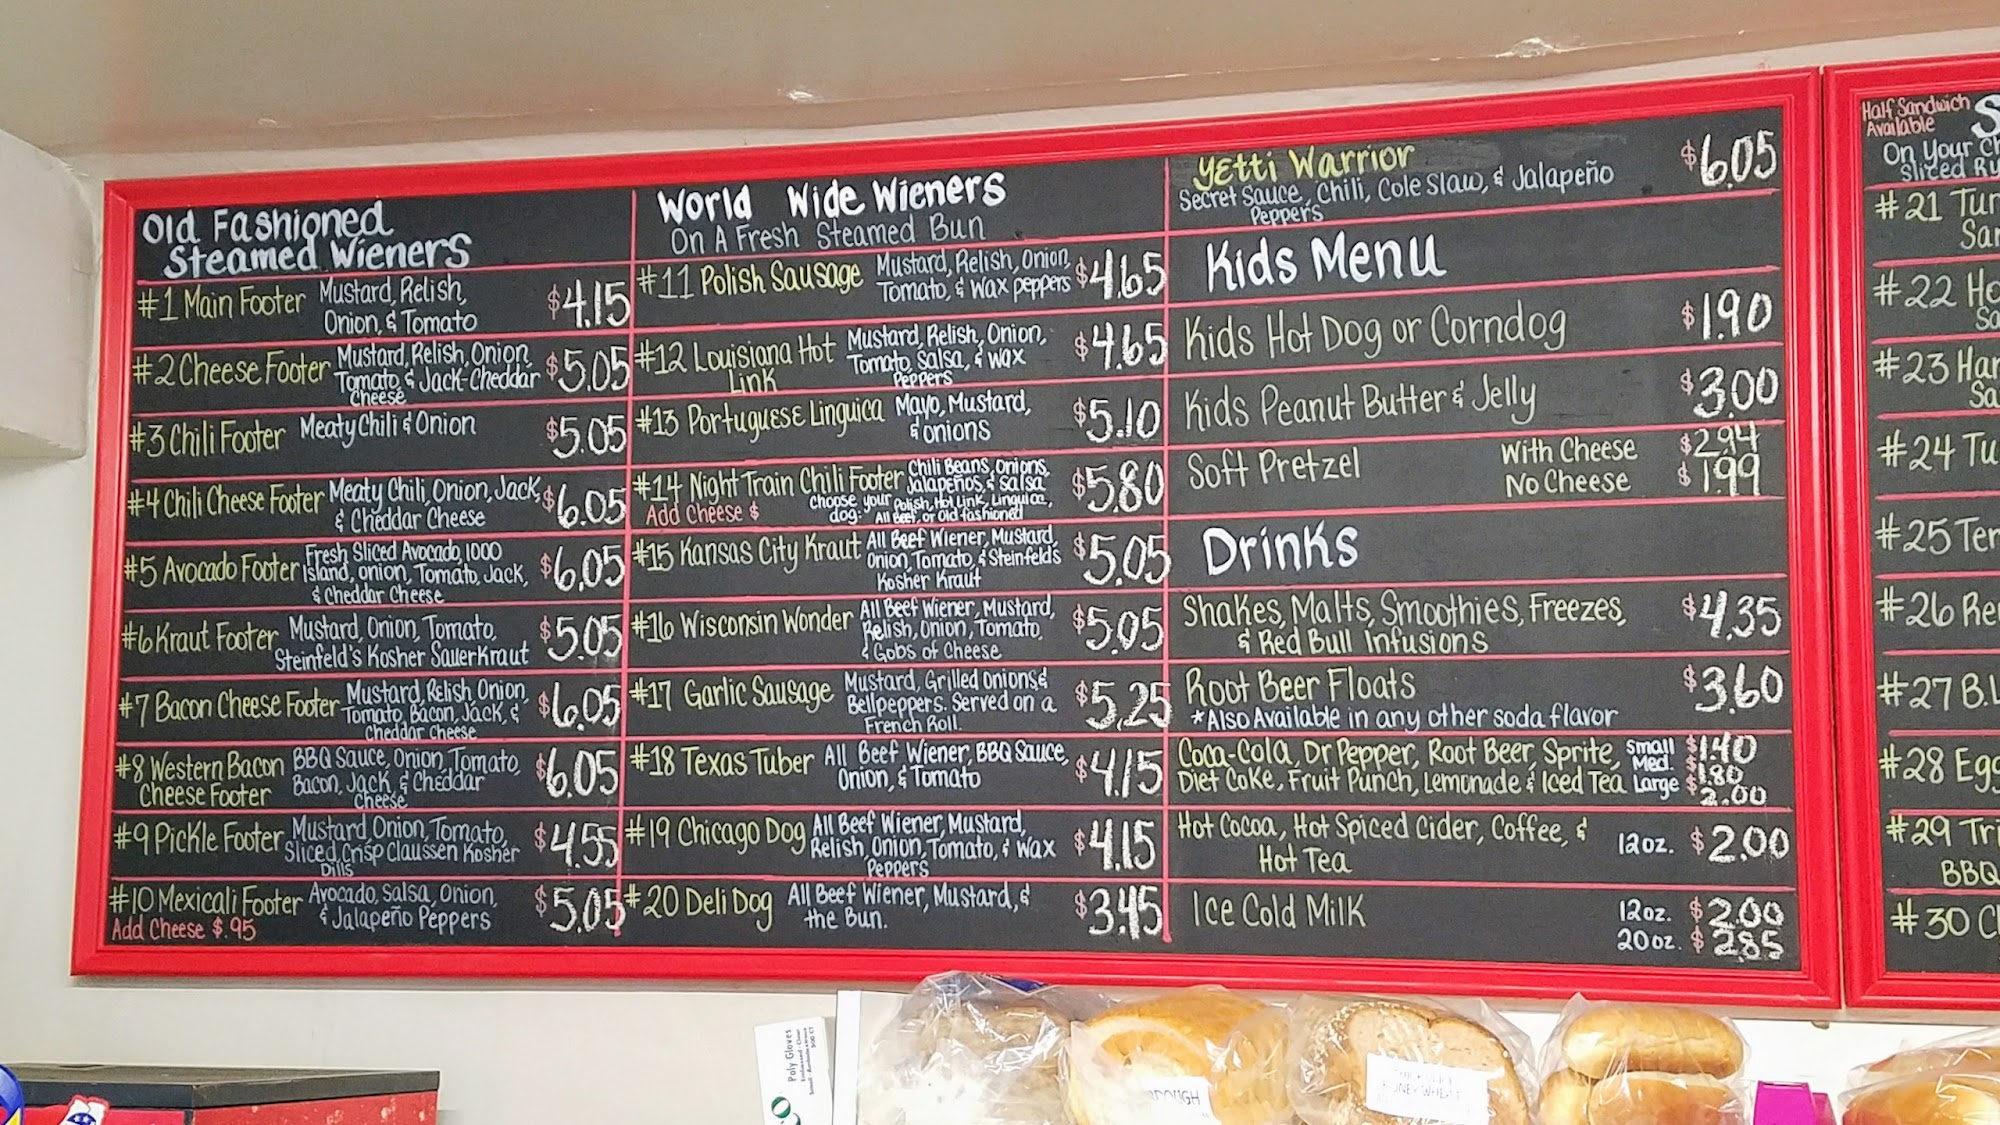 Old Fashioned
Steamed Wieners
#1 Main Footer Mustard, Relish,
Onion, & Tomato $4.15
#2 Cheese Footer Mustard, Relish, Onion,
Tomato, & Jack-Cheddar
Cheese $5.05
#3 Chili Footer Meaty Chili & Onion $5.05
#4 Chili Cheese Footer Meaty Chili, Onion, Jack,
& Cheddar Cheese $6.05
#5 Avocado Footer Fresh Sliced Avocado, 1000
Island, onion, Tomato, Jack,
& Cheddar Cheese $6.05
#6 Kraut Footer Mustard, Onion, Tomato,
Steinfeld's Kosher Sauerkraut $5.05
#7 Bacon Cheese Footer Mustard, Relish, Onion,
Tomato, Bacon, Jack, &
Cheddar Cheese $6.05
#8 Western Bacon
Cheese Footer BBQ Sauce, Onion, Tomato,
Bacon, Jack, & Cheddar
Cheese $6.05
#9 Pickle Footer Mustard, Onion, Tomato,
Sliced, Crisp Claussen Kosher
Dills $4.55
#10 Mexicali Footer Avocado, Salsa, Onion,
& Jalapeño Peppers $5.05
Add Cheese $.95
World Wide Wieners
On A Fresh Steamed Bun
#11 Polish Sausage Mustard, Relish, Onion,
Tomato, & Wax peppers $4.65
#12 Louisiana Hot
Link Mustard, Relish, Onion,
Tomato, Salsa, & Wax
Peppers $4.65
#13 Portuguese Linguica Mayo, Mustard,
& onions $5.10
#14 Night Train Chili Footer Chili Beans, Onions,
Jalapeños, & Salsa $5.80
Add Cheese $ Choose your
dog: Polish, Hot Link, Linguica,
All Beef, or Old fashioned
#15 Kansas City Kraut All Beef Wiener, Mustard,
Onion, Tomato, & Steinfeld's
Kosher Kraut $5.05
#16 Wisconsin Wonder All Beef Wiener, Mustard,
Relish, Onion, Tomato,
& Gobs of Cheese $5.05
#17 Garlic Sausage Mustard, Grilled onions &
Bellpeppers. Served on a
French Roll. $5.25
#18 Texas Tuber All Beef Wiener, BBQ Sauce,
Onion, & Tomato $4.15
#19 Chicago Dog All Beef Wiener, Mustard,
Relish, Onion, Tomato, & Wax
Peppers $4.15
#20 Deli Dog All Beef Wiener, Mustard, &
the Bun. $3.45
Yetti Warrior $6.05
Secret Sauce, Chili, Cole Slaw, & Jalapeño
Peppers
Kids Menu
Kids Hot Dog or Corndog $1.90
Kids Peanut Butter & Jelly $3.00
Soft Pretzel With Cheese $2.94
No Cheese $1.99
Drinks
Shakes, Malts, Smoothies, Freezes,
& Red Bull Infusions $4.35
Root Beer Floats $3.60
*Also Available in any other soda flavor
Coca-Cola, Dr Pepper, Root Beer, Sprite,
Diet Coke, Fruit Punch, Lemonade & Iced Tea
Small $1.40
Med. $1.80
Large $2.00
Hot Cocoa, Hot Spiced Cider, Coffee, &
Hot Tea 12oz. $2.00
Ice Cold Milk 12oz. $2.00
20oz. $2.85
Half Sandwich
Available
S
On Your Ch
Sliced Ru
#21 Tur
Sa
#22 Ho
Sa
#23 Ha
Sa
#24 Tu
#25 Ter
#26 Re
#27 B.L
#28 Egg
#29 Tri
BBQ
#30 C
Poly Gloves